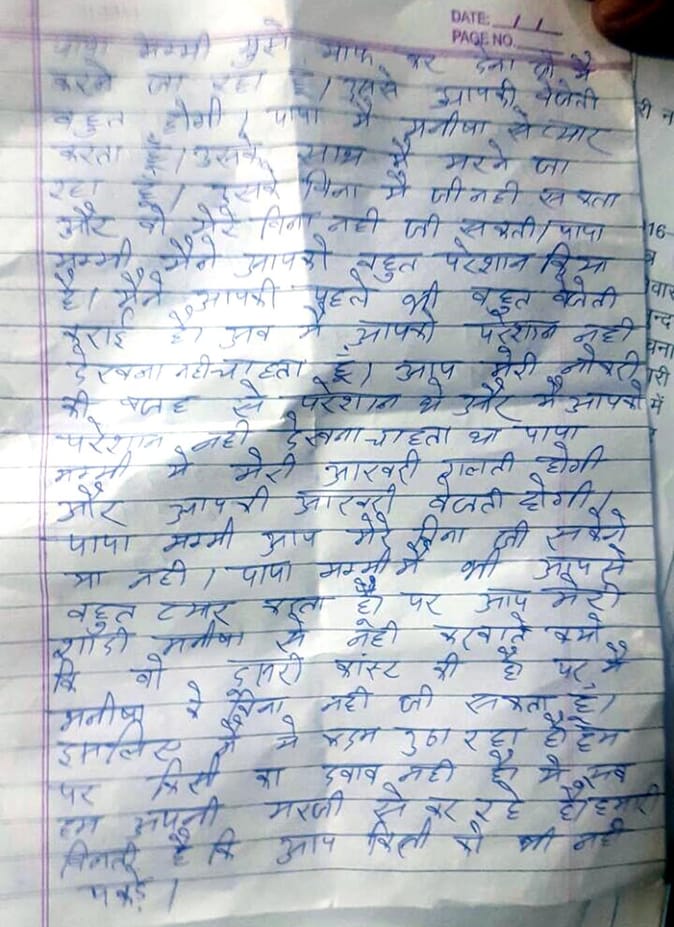 DATE: / /
PAGE NO.
पापा मम्मी मुझे माफ कर देना जो मै
करने जा रहा हूँ। उससे आपकी बेजेती
बहुत होगी। पापा मै मनीषा से प्यार
करता हूँ। उसके साथ मै मरने जा
रहा हूँ। उसके बिना मै जी नही सकता
और वो मेरे बिना नही जी सकती। पापा
मम्मी मैने आपको बहुत परेशान किया
है। मैने आपकी पहले भी बहुत बेजेती
कराई है। अब मै आपको परेशान नही
देखना नही चाहता हूँ। आप मेरी नोकरी
की वजह से परेशान थे और मै आपको
परेशान नही देखना चाहता था पापा
मम्मी ये मेरी आखरी गलती होगी
और आपकी आखरी बेजती होगी।
पापा मम्मी आप मेरे बिना जी सकेंगे
या नही। पापा मम्मी मै भी आपसे
बहुत प्यार करता हूँ पर आप मेरी
शादी मनीषा से नही करवाते क्यो
कि वो दूसरी कास्ट की है पर मै
मनीषा के बिना नही जी सकता हूँ।
इसलिए मै ये कदम उठा रहा हूँ हम
पर किसी का दवाव नही है। ये सब
हम अपनी मरजी से कर रहे है। हमारी
विनती है कि आप किसी को भी नही
पकड़े।
16